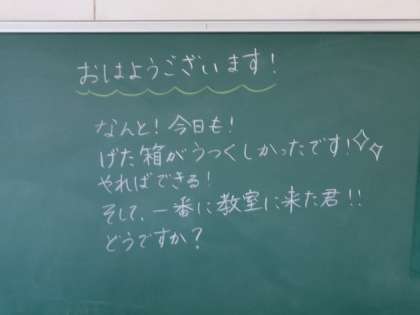 おはようございます!
なんと!今日も!
げた箱がうつくしかったです!
やればできる!
そして、一番に教室に来た君!!
どうですか?